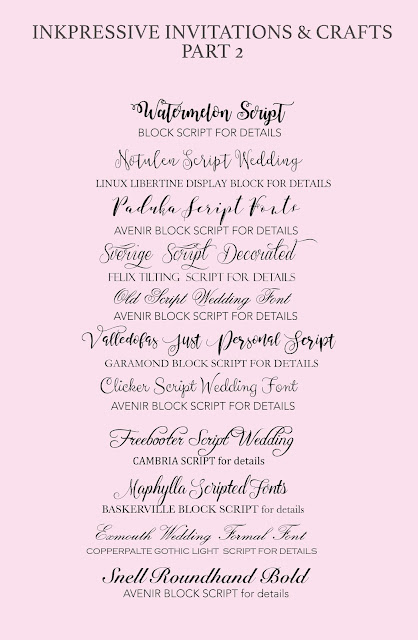 INKPRESSIVE INVITATIONS & CRAFTS
PART 2
Watermelon Script
BLOCK SCRIPT FOR DETAILS
Notulen Script Wedding
LINUX LIBERTINE DISPLAY BLOCK FOR DETAILS
Paduka Script Fonts
AVENIR BLOCK SCRIPT FOR DETAILS
Sverige Script Decorated
FELIX TILTING SCRIPT FOR DETAILS
Old Script Wedding Font
AVENIR BLOCK SCRIPT FOR DETAILS
Valledofas Just Personal Script
GARAMOND BLOCK SCRIPT FOR DETAILS
Clicker Script Wedding Font
AVENIR BLOCK SCRIPT FOR DETAILS
Freebooter Script Wedding
CAMBRIA SCRIPT for details
Maphylla Scripted Fonts
BASKERVILLE BLOCK SCRIPT for details
Exmouth Wedding Formal Font
COPPERPALTE GOTHIC LIGHT SCRIPT FOR DETAILS
Snell Roundhand Bold
AVENIR BLOCK SCRIPT for details